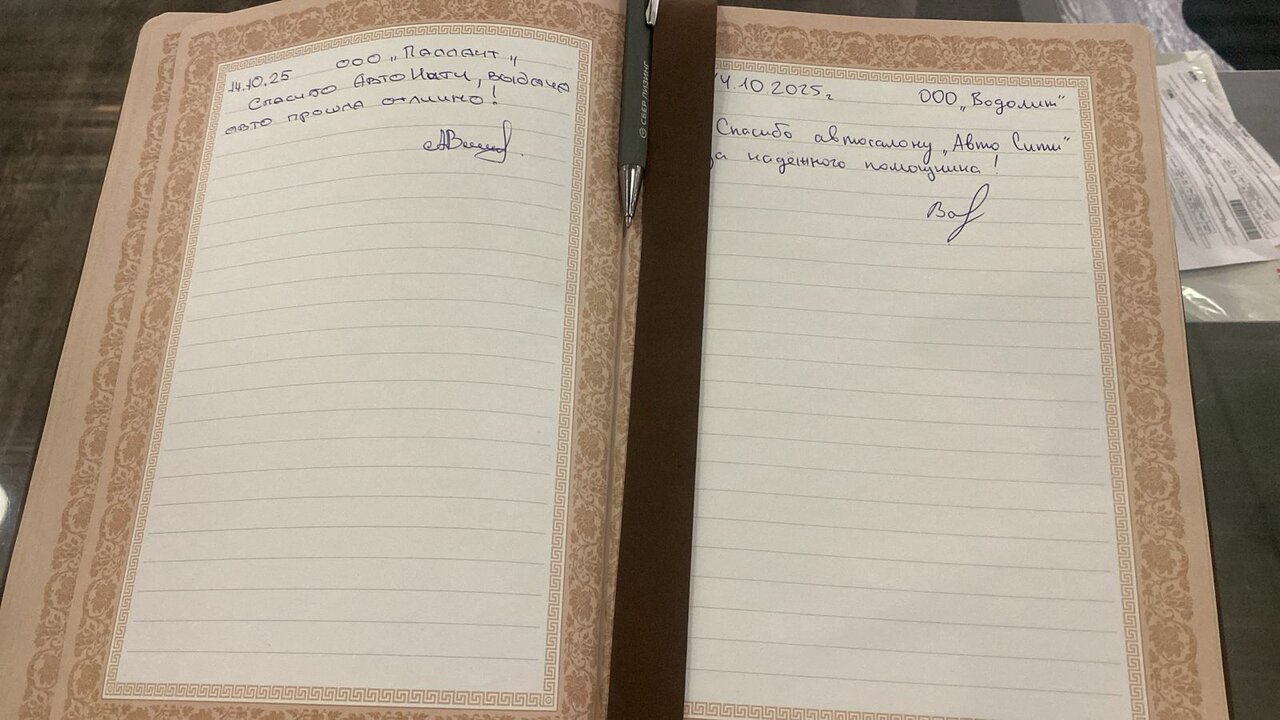 14.10.25 ООО „Паллант"
Спасибо АвтоСити, выдача
авто прошла отлично!
СБЕР ЛИЗИНГ
14.10.2025г ООО „Водолит"
Спасибо автосалону „Авто Сити"
за надёжного помощника!